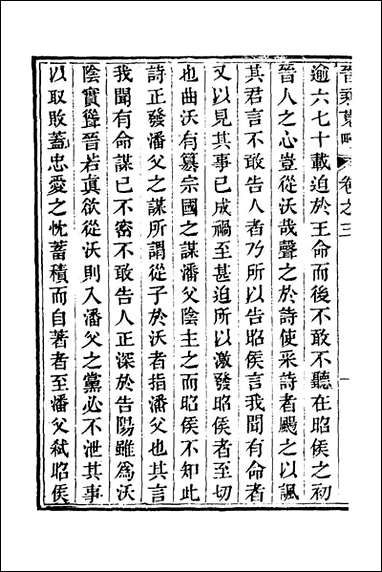 晉乘蒐略 卷之三
逾六七十載迫於王命而後不敢不聽在昭侯之初
晉人之心豈從沃哉聲之於詩使采詩者颺之以諷
其君言不敢告人者乃所以告昭侯言我聞有命者
又以見其事已成禍至甚迫所以激發昭侯者至切
也曲沃有簒宗國之謀潘父陰主之而昭侯不知此
詩正發潘父之謀所謂從子於沃者指潘父也其言
我聞有命謀已不密不敢告人正深於告陽雖爲沃
陰實聳晉若眞欲從沃則入潘父之黨必不泄其事
以取敗蓋忠愛之忱蓄積而自著者至潘父弑昭侯